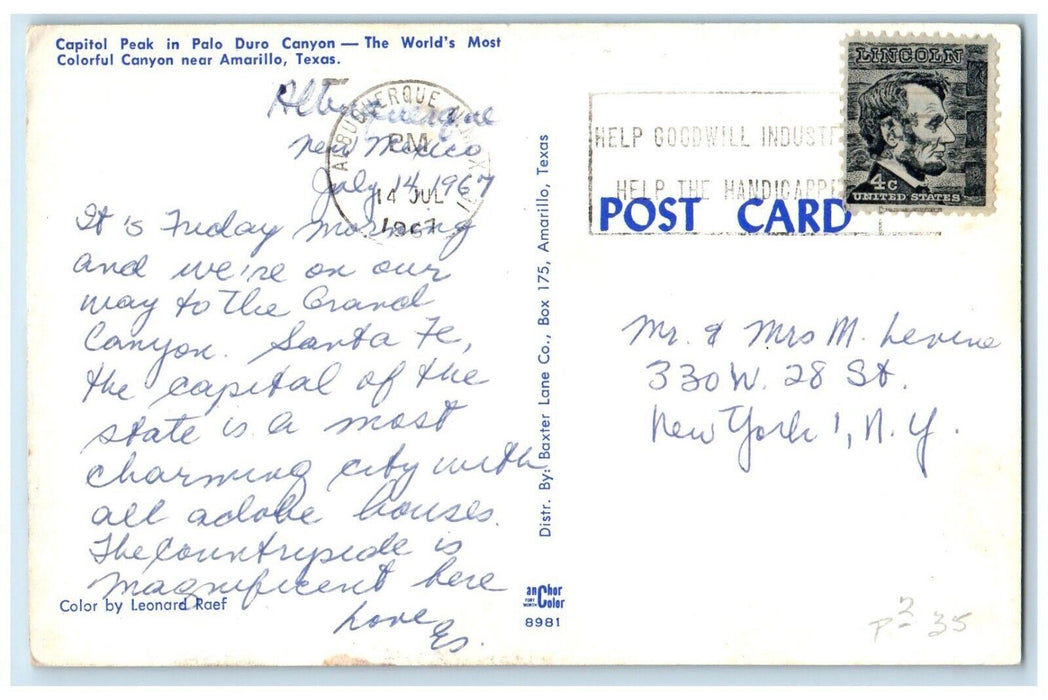 Capitol Peak in Palo Duro Canyon — The World's Most
Colorful Canyon near Amarillo, Texas.
Albuquerque
New Mexico
July 14, 1967
It is Friday morning
and we're on our
way to the Grand
Canyon. Santa Fe,
the capital of the
state is a most
charming city with
all adobe houses.
The countryside is
magnificent here
Love
Es.
Color by Leonard Raef
ALBUQUERQUE
PM
14 JUL
1967
Distr. By: Baxter Lane Co., Box 175, Amarillo, Texas
anchor
FORT WORTH Color
8981
HELP GOODWILL INDUST
HELP THE HANDICAPPE
POST CARD
LINCOLN
4c
UNITED STATES
Mr. & Mrs M. Levine
330 W. 28 St.
New York 1, N.Y.
35